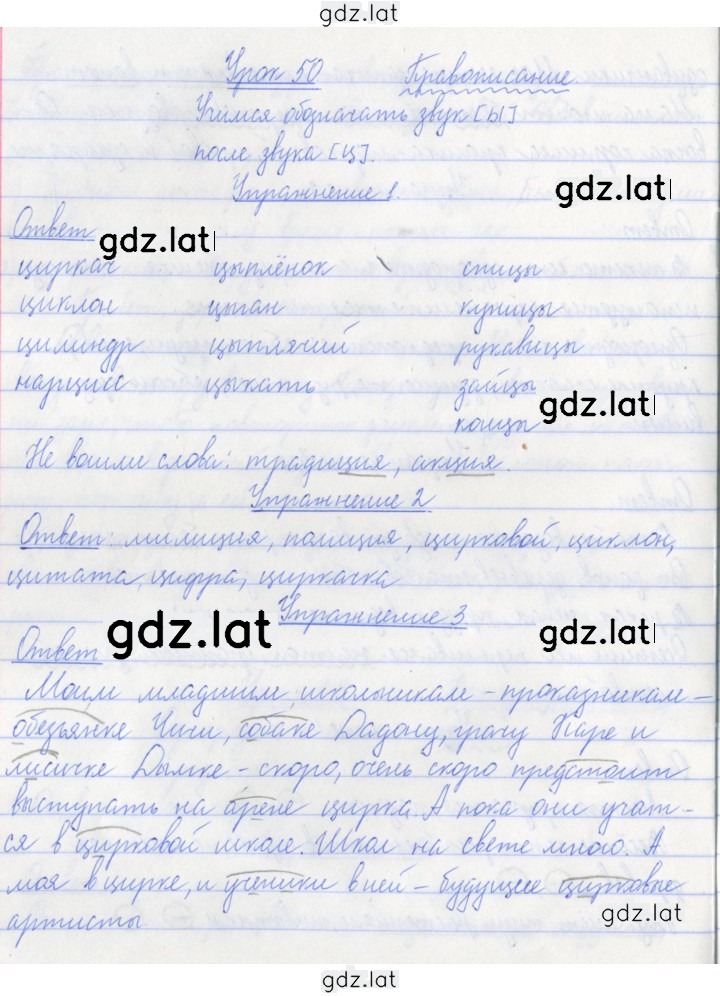 gdz.lat
Урок 50 Правописание
Учимся обозначать звук [ы]
после звука [ц].
Упражнение 1.
gdz.lat
Ответ
gdz.lat
циркач цыплёнок спицы
циклон цыган куницы
цилиндр цыплячий рукавицы
нарцисс цыкать зайцы
gdz.lat
концы
Не вошли слова: традиция, акция.
Упражнение 2
Ответ: милиция, полиция, цирковой, циклон,
цитата, цифра, циркачка
Упражнение 3
gdz.lat
gdz.lat
Ответ
Моим младшим школьникам - проказникам -
обезьянке Чичи, собаке Дадону, грачу Каре и
лисичке Дымке - скоро, очень скоро предстоит
выступать на арене цирка. А пока они учат-
ся в цирковой школе. Школ на свете много. А
моя в цирке, и ученики в ней - будущие цирковые
gdz.lat
артисты.
gdz.lat